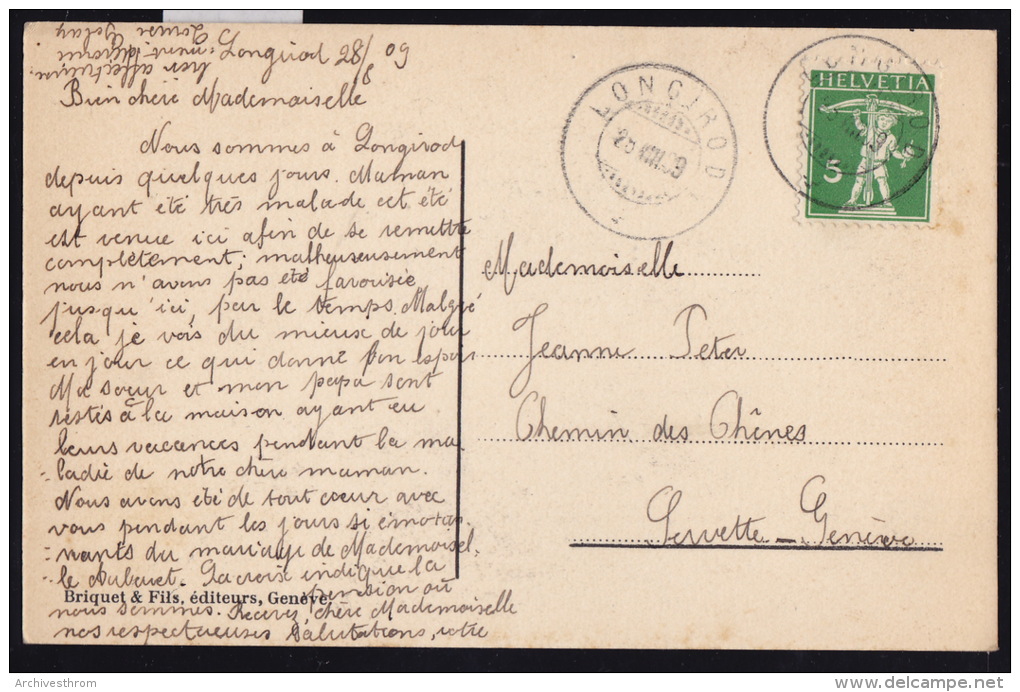 Longirod 28/8 09
Bien chère Mademoiselle
Nous sommes à Longirod
depuis quelques jours. Maman
ayant été très malade cet été
est venue ici afin de se remettre
complètement; malheureusement
nous n'avons pas été favorisée
jusqu'ici, par le temps. Malgré
cela je vois du mieux de jour
en jour ce qui donne bon espoir
Ma soeur et mon papa sont
restés à la maison ayant eu
leurs vacances pendant la ma
ladie de notre chère maman.
Nous avons été de tout coeur avec
vous pendant les jours si émotion
nants du mariage de Mademoisel.
le Aubouet. La croix indique la
pension où
nous sommes. Recevez, chère Mademoiselle
nos respectueuses salutations, votre
bien affectionnée
Louise Golay
Briquet & Fils, éditeurs, Genève.
LONGIROD
25.VIII.09
HELVETIA
5
LONGIROD
Mademoiselle
Jeanne Peter
Chemin des Chênes
Servette - Genève
Archivesthrom
delcampe.net